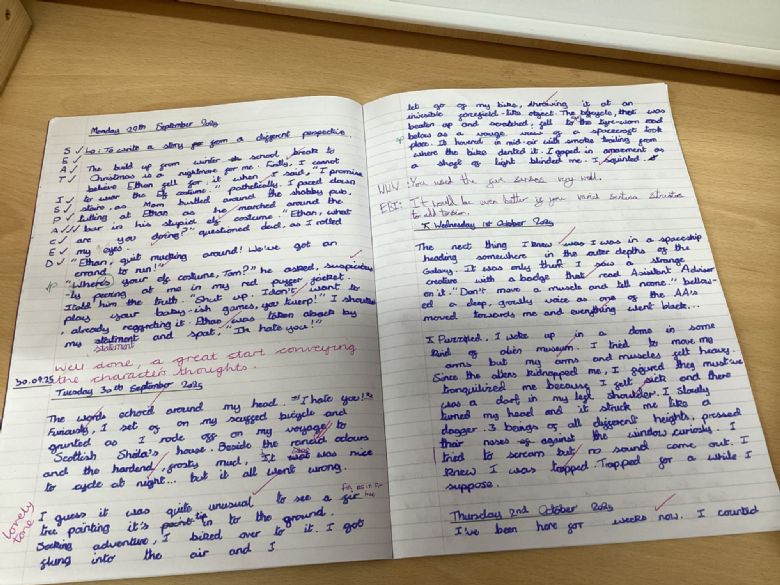 Monday 29th September 2025
S ✓ Lo: To write a story from a different perspective.
E ✓
A ✓ The build up from winter school break to
T ✓ Christmas is a nightmare for me. Firstly, I cannot
believe Ethan fell for it when I said, "I promise
I ✓ to wear the Elf costume" pathetically. I paced down
S ✓ stairs as Mom bustled around the shabby pub,
P ✓ tutting at Ethan as he marched around the
A /// bar in his stupid elf costume. "Ethan, what
C ✓ are you doing?" questioned dad, as I rolled
E ✓ my eyes.
D ✓ "Ethan, quit mucking around! We've got an
errand to run!"
sp "Where's your elf costume, Tom?" he asked, suspicious
-ly peering at me in my red puffer jacket.
I told him the truth. "Shut up. I don't want to
play your baby-ish games, you twerp!" I shouted
, already reggreting it. Ethan was taken aback by
my statment and spat, "I hate you!"
statement
Well done, a great start conveying
the characters thoughts.
30.09.25
Tuesday 30th September 2025
The words echord around my head. "I hate you!"
Furiously, I set of on my scuffed bicycle and
grunted as I rode off on my voyage to
Scottish Sheila's house. Beside the rancid odours
and the hardend, frosty mud, it was nice
to cycle at night... but it all went wrong.
lonely tone
I guess it was quite unusual to see a fir
Fir, as in fir tree
tre pointing it's tip in to the ground.
Seeking adventure, I biked over to it. I got
flung into the air and I
let go of my bike, throwing it at an
invisible forcefield-like object. The bicycle, that was
beaten up and scratched, fell to the tyre-worn road
sp below as a vouge view of a spacecraft took
place. It hoverd in mid-air with smoke trailing from
where the bike dented it. I gaped in amazement as
a shaft of light blinded me. I squinted.
WWW: You used the five senses very well.
EBI: It would be even better if you varied sentence structure
to add tension.
Wednesday 1st October 2025
The next thing I knew was I was in a spaceship
heading somewhere in the outer depths of the
Galaxy. It was only then I saw a strange
creature with a badge that read Asisitant Adviser
on it. "Don't move a muscle and tell noone." bellow-
ed a deep, groggly voice as one of the AA's
moved towards me and everything went black...
Puzzifled, I woke up in a dome in some
kind of alien museum. I tried to move my
arms but my arms and muscles felt heavy.
Since the aliens kidnapped me, I figured they must've
tranquilized me because I felt sick and there
was a dart in my left shoulder. I slowly
turned my head and it struck me like a
dagger. 3 beings of all different heights, pressed
their noses against the window curiously. I
tried to scream but no sound came out. I
knew I was trapped. Trapped for a while I
suppose.
Thursday 2nd October 2025
I've been here for weeks now. I counted